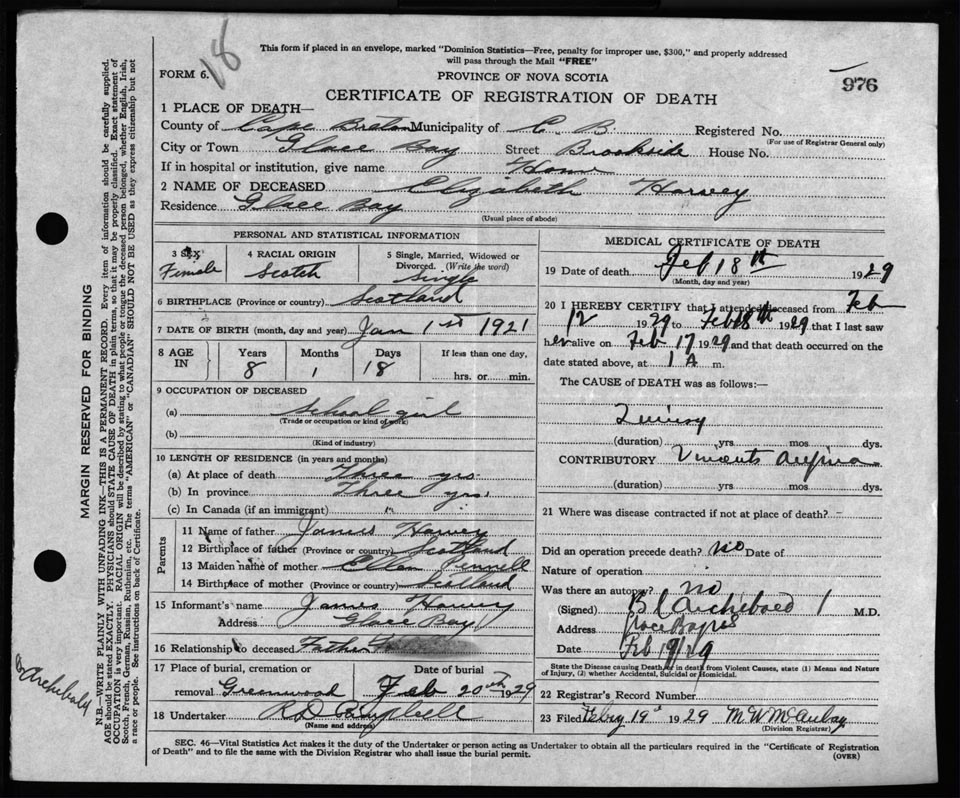 18
This form if placed in an envelope, marked "Dominion Statistics—Free, penalty for improper use, $300," and properly addressed
will pass through the Mail "FREE"
FORM 6.
PROVINCE OF NOVA SCOTIA
976
CERTIFICATE OF REGISTRATION OF DEATH
1 PLACE OF DEATH—
County of Cape Breton Municipality of C. B. Registered No.
(For use of Registrar General only)
City or Town Glace Bay Street Brookside House No.
If in hospital or institution, give name Home
2 NAME OF DECEASED Elizabeth Harvey
Residence Glace Bay
(Usual place of abode)
PERSONAL AND STATISTICAL INFORMATION
3 SEX
Female
4 RACIAL ORIGIN
Scotch
5 Single, Married, Widowed or
Divorced. (Write the word)
Single
6 BIRTHPLACE (Province or country) Scotland
7 DATE OF BIRTH (month, day and year) Jan 1st 1921
8 AGE
IN
Years
8
Months
1
Days
18
If less than one day,
hrs. or min.
9 OCCUPATION OF DECEASED
(a) School girl
(Trade or occupation or kind of work)
(b)
(Kind of industry)
10 LENGTH OF RESIDENCE (in years and months)
(a) At place of death Three yrs
(b) In province Three yrs.
(c) In Canada (if an immigrant) "
Parents
11 Name of father James Harvey
12 Birthplace of father (Province or country) Scotland
13 Maiden name of mother Ellen
14 Birthplace of mother (Province or country) Scotland
15 Informant's name James Harvey
Address Glace Bay
16 Relationship to deceased Father
17 Place of burial, cremation or
removal Greenwood
Date of burial
Feb 20th 1929
18 Undertaker
(Name and address)
MEDICAL CERTIFICATE OF DEATH
19 Date of death Feb 18th 1929
(Month, day and year)
20 I HEREBY CERTIFY that I attended deceased from Feb
12 1929 to Feb 18th 1929 that I last saw
her alive on Feb 17 1929 and that death occurred on the
date stated above, at 1 A m.
The CAUSE of DEATH was as follows:—
Quinsy
(duration) yrs mos dys.
CONTRIBUTORY Vincents Angina
(duration) yrs mos dys.
21 Where was disease contracted if not at place of death?
Did an operation precede death? no Date of
Nature of operation
Was there an autopsy? no
(Signed) Archibald M.D.
Address Glace Bay NS
Date Feb 19/29
State the Disease causing Death, or in death from Violent Causes, state (1) Means and Nature
of Injury, (2) whether Accidental, Suicidal or Homicidal.
22 Registrar's Record Number
23 Filed Feby 19th 1929
(Division Registrar)
SEC. 46—Vital Statistics Act makes it the duty of the Undertaker or person acting as Undertaker to obtain all the particulars required in the "Certificate of Registration
of Death" and to file the same with the Division Registrar who shall issue the burial permit.
(OVER)
MARGIN RESERVED FOR BINDING
N.B.—WRITE PLAINLY WITH UNFADING INK—THIS IS A PERMANENT RECORD. Every item of information should be carefully supplied.
AGE should be stated EXACTLY. PHYSICIANS should STATE CAUSE OF DEATH in plain terms, so that it may be properly classified. Exact statement of
OCCUPATION is very important. RACIAL ORIGIN will be described by stating to what people or tongue the deceased person belonged, whether English, Irish,
Scotch, French, German, Russian, Ruthenian, etc. The terms "AMERICAN" or "CANADIAN" SHOULD NOT BE USED as they express citizenship but not
a race or people. See instructions on back of Certificate.
Archibald